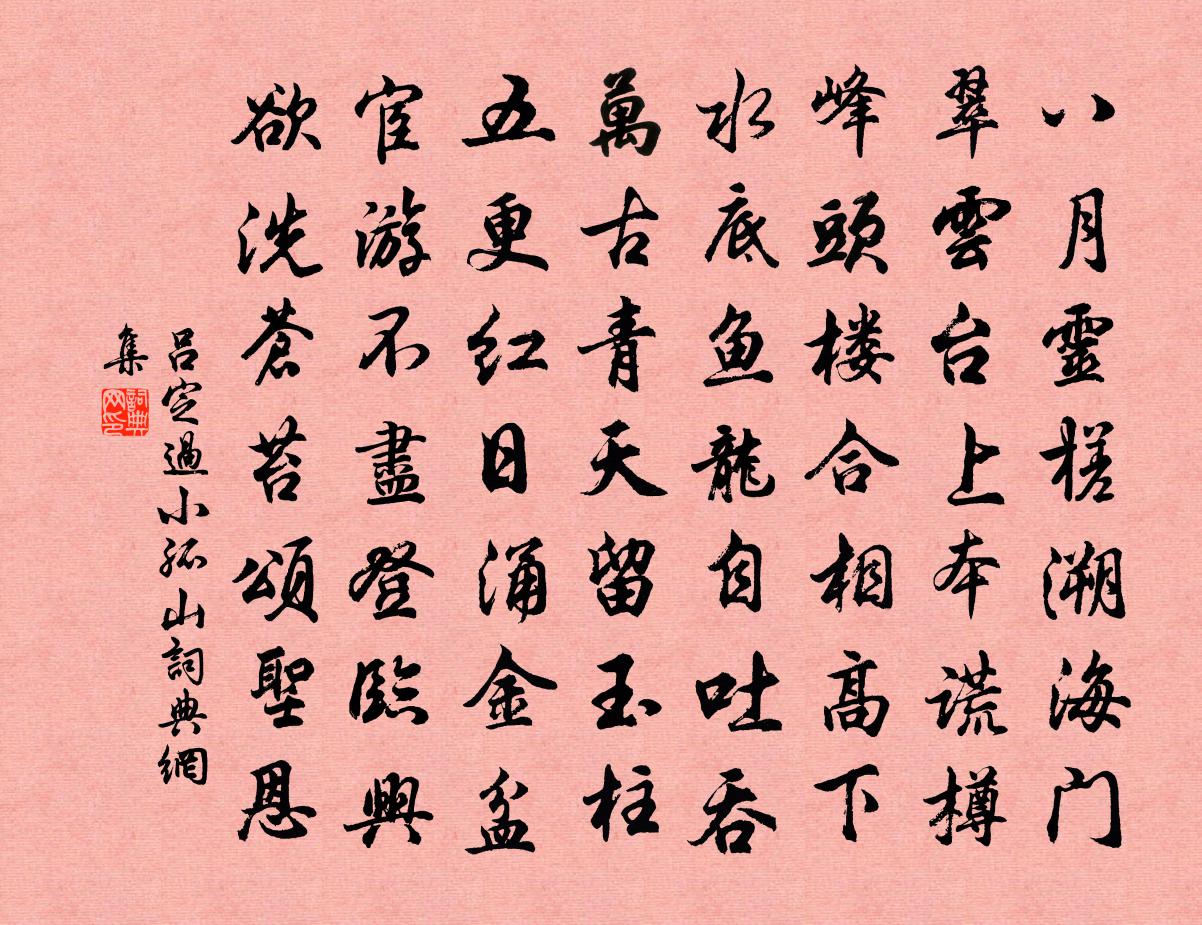 八月靈槎溯海门
翠雲台上本谎樽
峰頭楼合相高下
水底鱼龍自吐吞
萬古青天留玉柱
五更红日涌金盆
宦游不盡登臨興
欲洗苍苔頌聖恩
吕定過小孤山詞典網
集
詞典網印